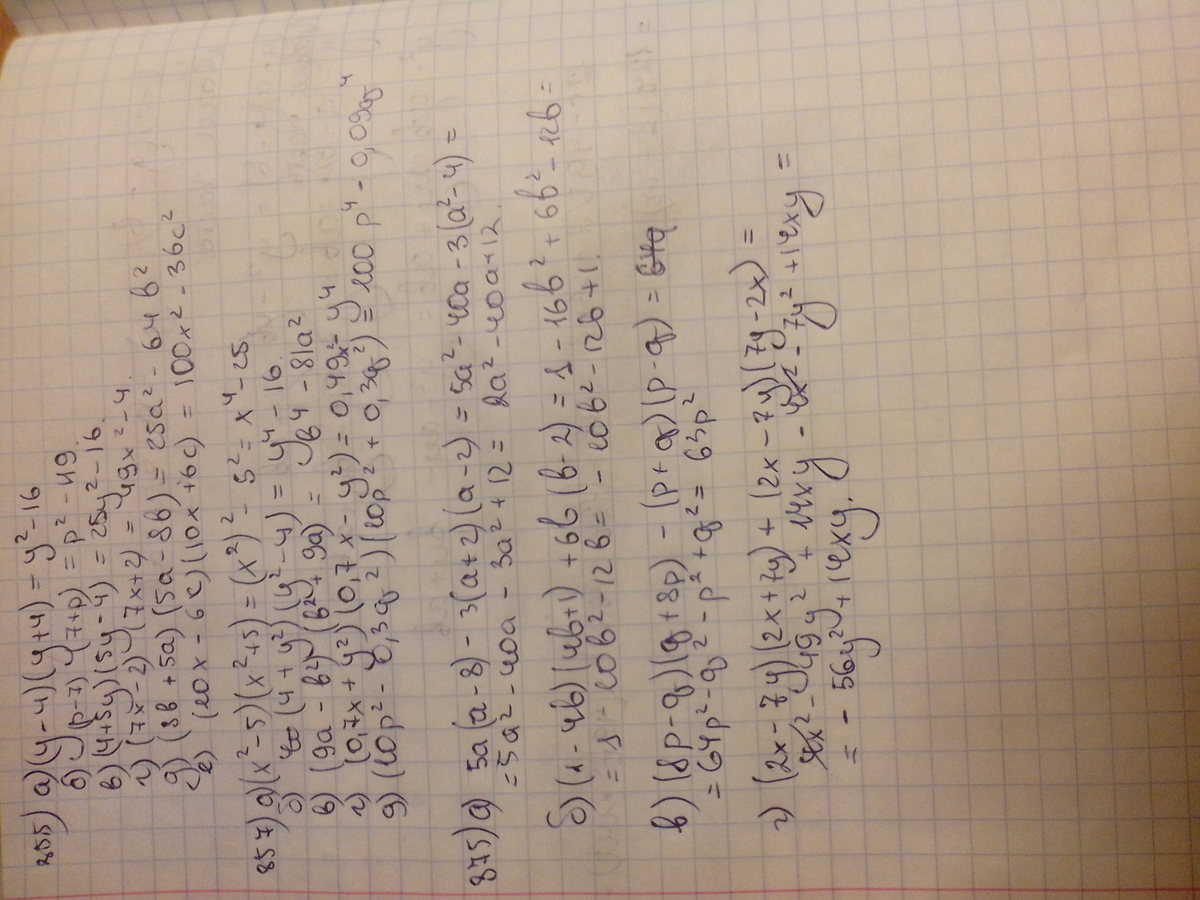 855) а) (y-4)(y+4) = y²-16
б) (p-7)(7+p) = p²-49.
в) (4+5y)(5y-4) = 25y²-16.
г) (7x-2)(7x+2) = 49x²-4.
д) (8b+5a)(5a-8b) = 25a²-64b²
е) (10x-6c)(10x+6c) = 100x²-36c²
857) а) (x²-5)(x²+5) = (x²)²-5² = x⁴-25
б) (4+y²)(y²-4) = y⁴-16.
в) (9a-b²)(b²+9a) = b⁴-81a²
г) (0,7x+y²)(0,7x-y²) = 0,49x²-y⁴
д) (10p²-0,3q²)(10p²+0,3q²) = 100p⁴-0,09q⁴
875) а) 5a(a-8)-3(a+2)(a-2) = 5a²-40a-3(a²-4) =
= 5a²-40a-3a²+12 = 2a²-40a+12.
б) (1-4b)(4b+1)+6b(b-2) = 1-16b²+6b²-12b =
= 1-10b²-12b = -10b²-12b+1.
в) (8p-q)(q+8p)-(p+q)(p-q) = 64q
= 64p²-q²-p²+q² = 63p²
г) (2x-7y)(2x+7y)+(2x-7y)(7y-2x) =
4x²-49y²+14xy-4x²-7y²+14xy =
= -56y²+14xy.